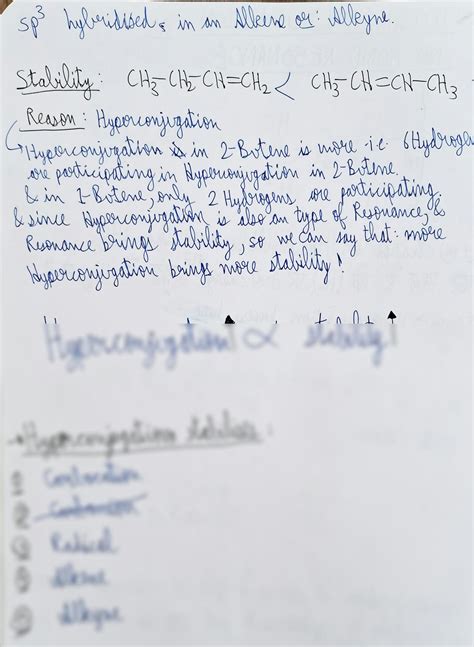 sp³ hybridised, in an Alkene or: Alkyne.
Stability: CH₃-CH₂-CH=CH₂ < CH₃-CH=CH-CH₃
Reason: Hyperconjugation
Hyperconjugation is in 2-Butene is more i.e. 6 Hydrogens
are participating in Hyperconjugation in 2-Butene
& in 1-Butene, only 2 Hydrogens are participating.
& since Hyperconjugation is also an type of Resonance, &
Resonance brings stability, so we can say that: more
Hyperconjugation brings more stability!
Hyperconjugation ∝ stability
→ Hyperconjugation stabilises:
① Carbocation
② Carbanion
③ Radical
Alkene
Alkyne